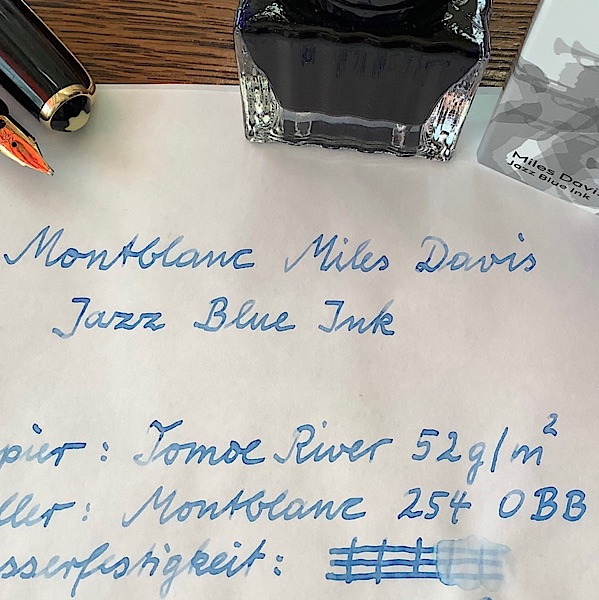 Miles Davis
Jazz Blue Ink
Montblanc Miles Davis
Jazz Blue Ink
pier : Tomoe River 52g/m²
ller : Montblanc 254 OBB
sserfestigkeit :